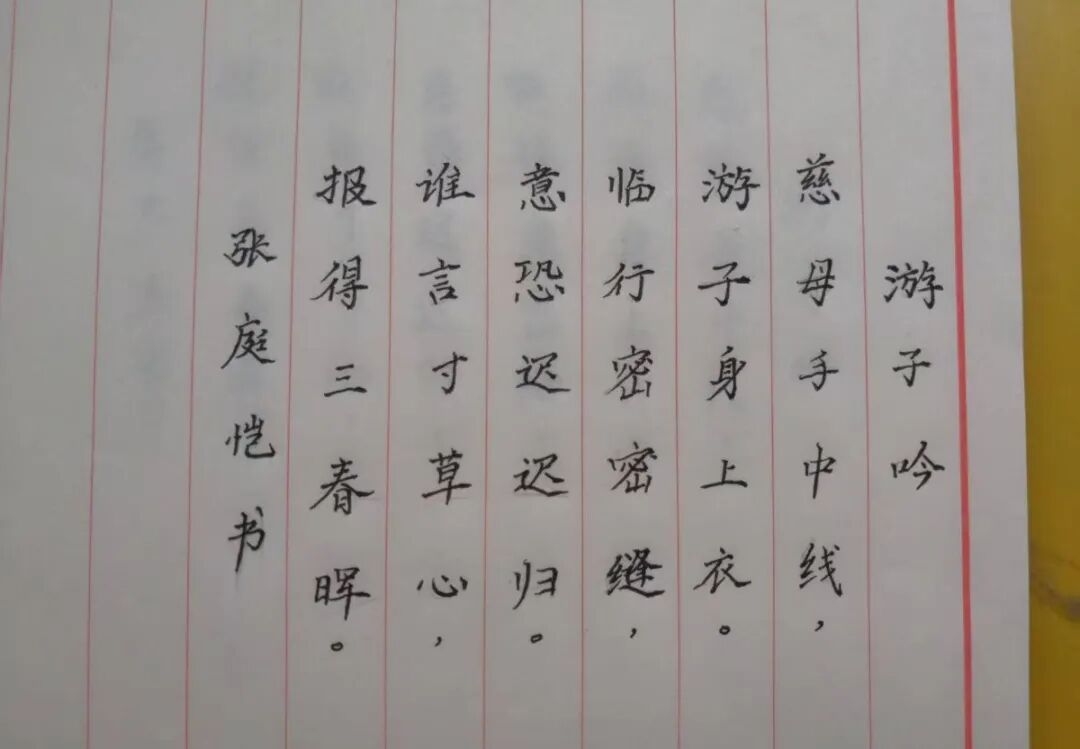 游子吟
慈母手中线，
游子身上衣。
临行密密缝，
意恐迟迟归。
谁言寸草心，
报得三春晖。
张庭恺书